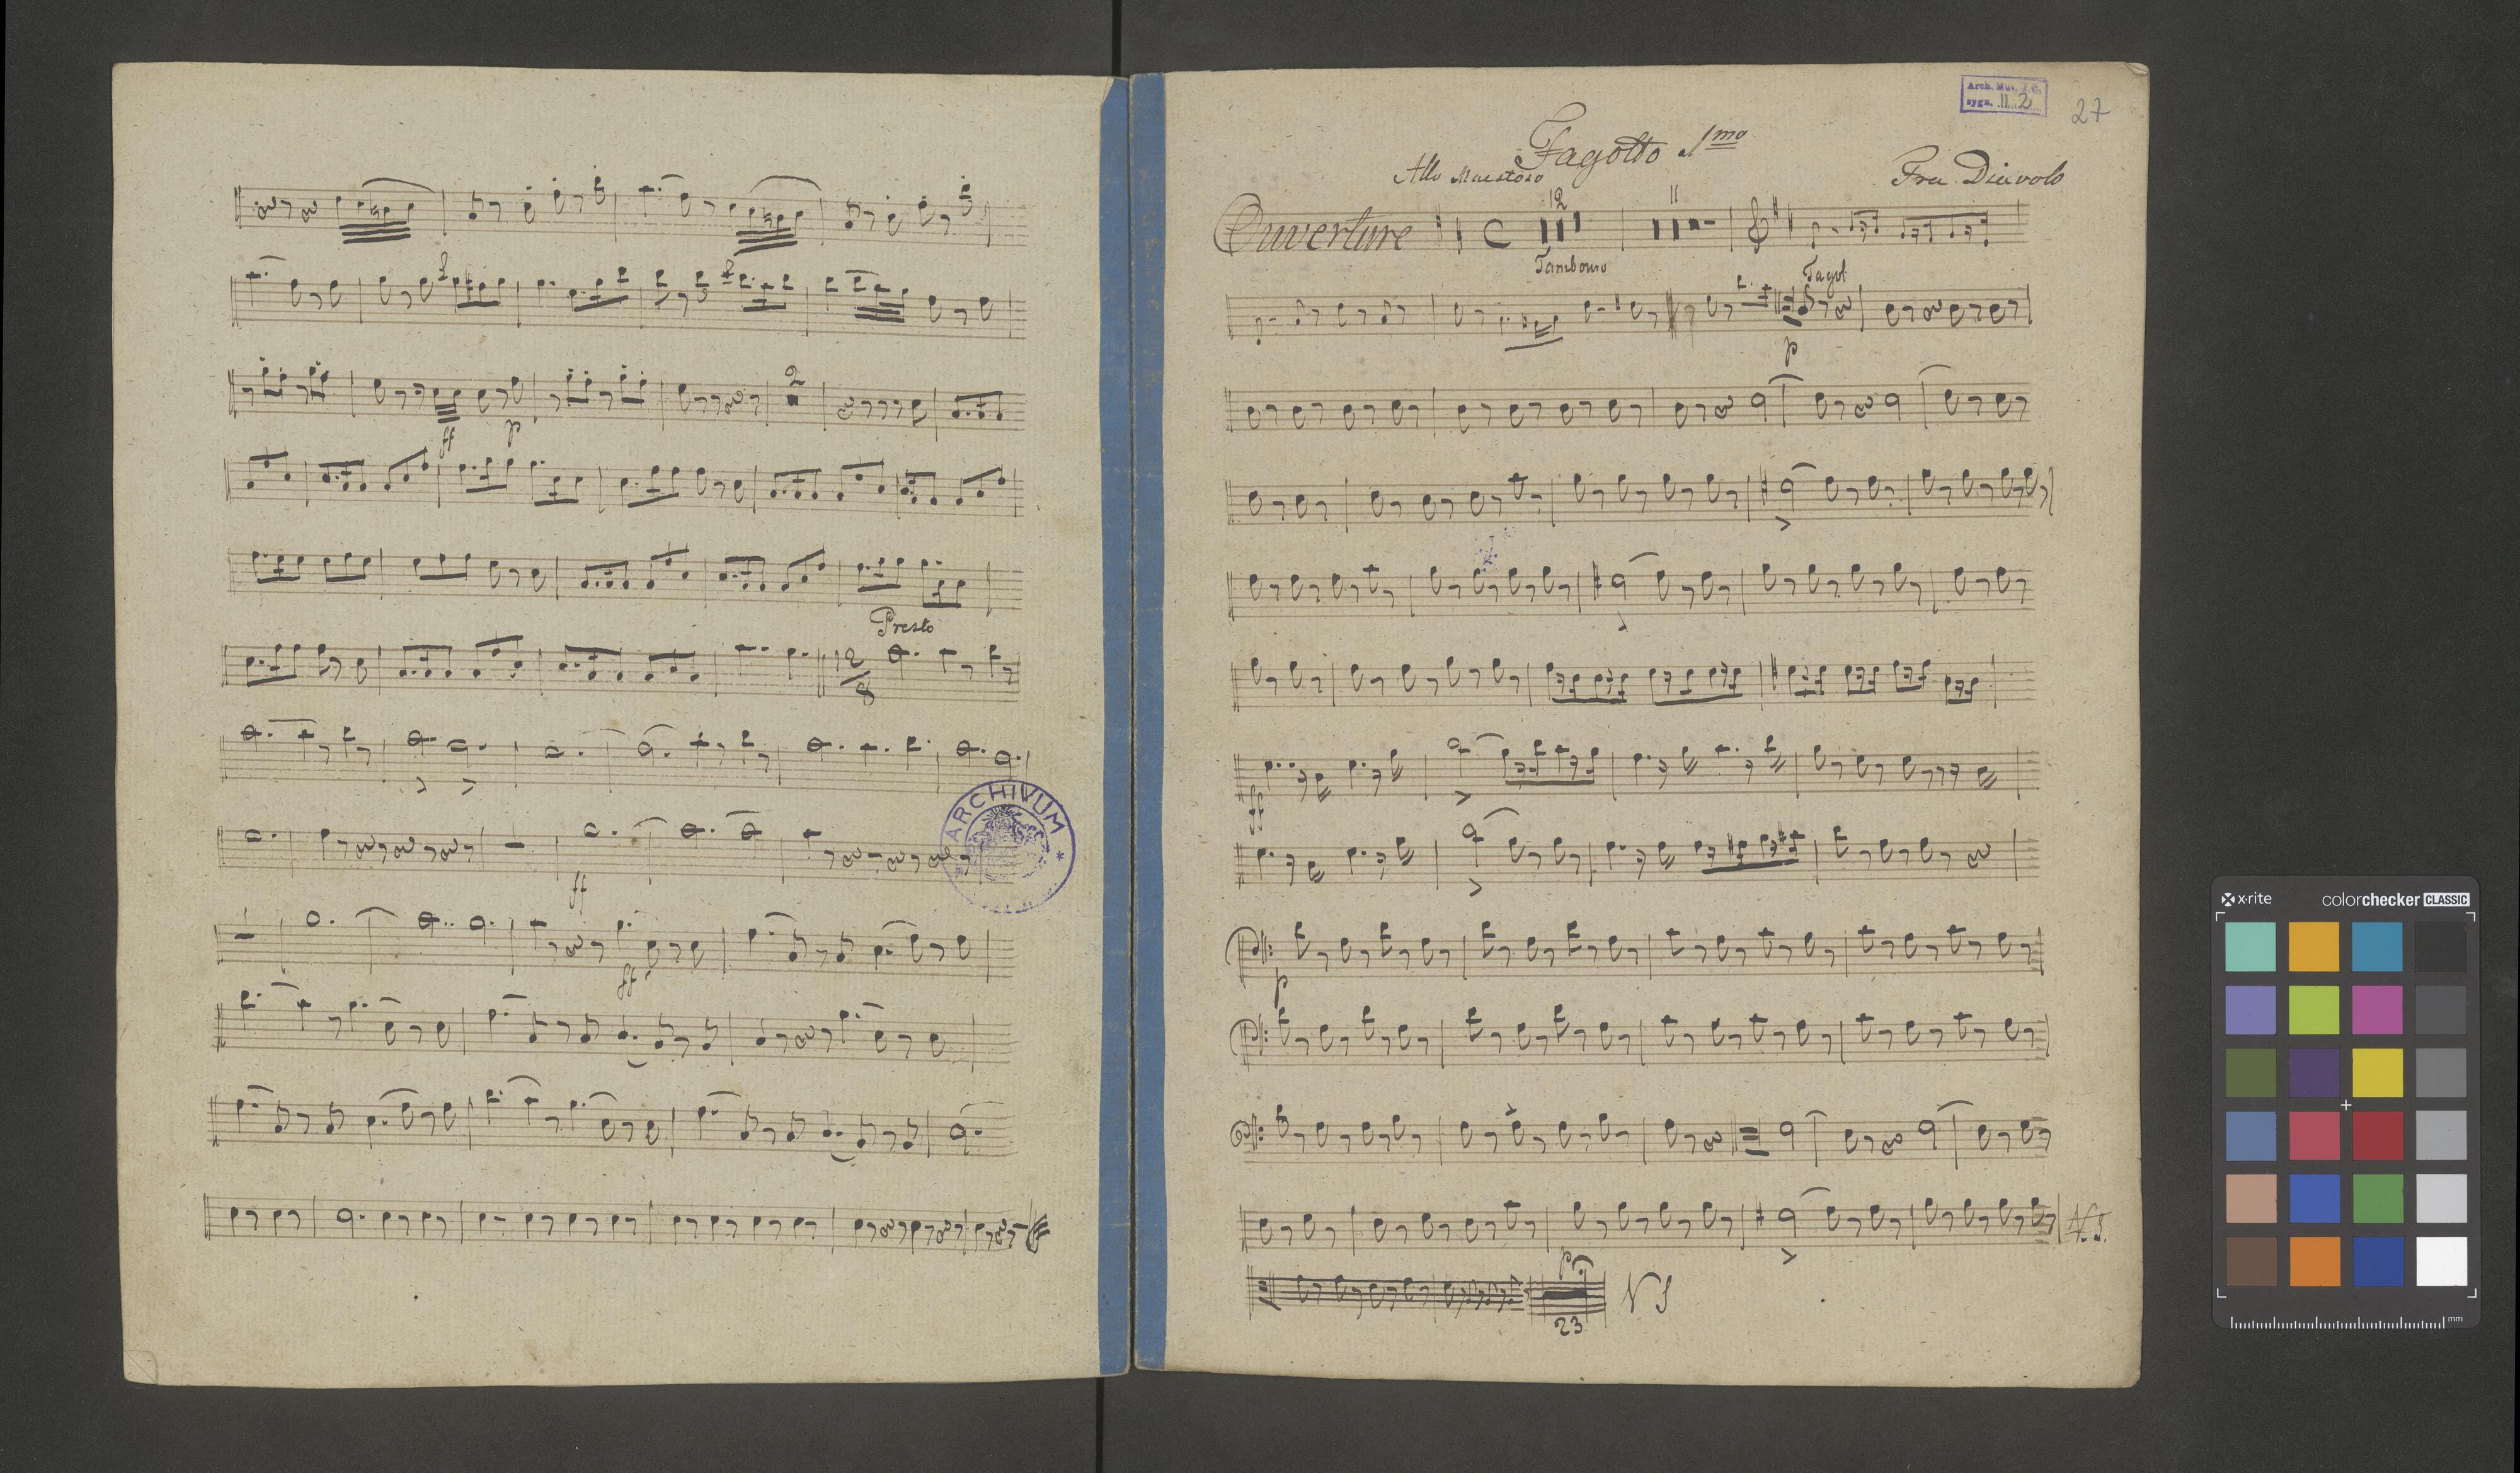 ff
p
Presto
12
8
ff
ARCHIVUM
ff
Arch. Mus. J. G.
sygn. II 2
27
Fagotto 1mo
Allo Maestoso
Fra Diavolo
Ouverture
12
11
Tambouro
Fagot
p
ff
p
N.S.
23
NS
x-rite
colorchecker CLASSIC
mm